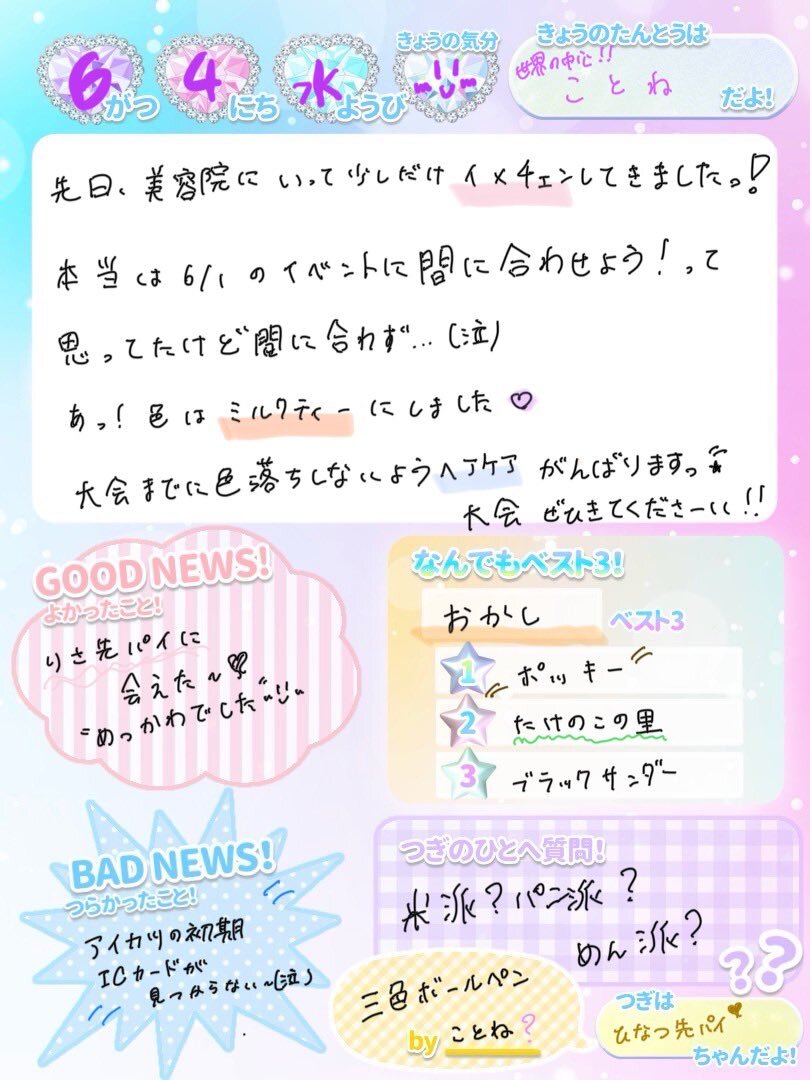 6がつ 4にち 水ようび
きょうの気分
きょうのたんとうは
世界の中心!!
ことね
だよ!
先日、美容院にいって少しだけイメチェンしてきましたっ!
本当は6/1のイベントに間に合わせよう!って
思ってたけど間に合わず…(泣)
あっ!色はミルクティーにしました♡
大会までに色落ちしないようヘアケアがんばりますっ
大会ぜひきてくださーいい!!
GOOD NEWS!
よかったこと!
りさ先パイに
会えた~♡
めっかわでした
なんでもベスト3!
おかし ベスト3
1 ポッキー
2 たけのこの里
3 ブラックサンダー
BAD NEWS!
つらかったこと!
アイカツの初期
ICカードが
見つからない~(泣)
つぎのひとへ質問!
米派?パン派?
めん派?
??
三色ボールペン
by ことね?
つぎは
ひなつ先パイ♡
ちゃんだよ!